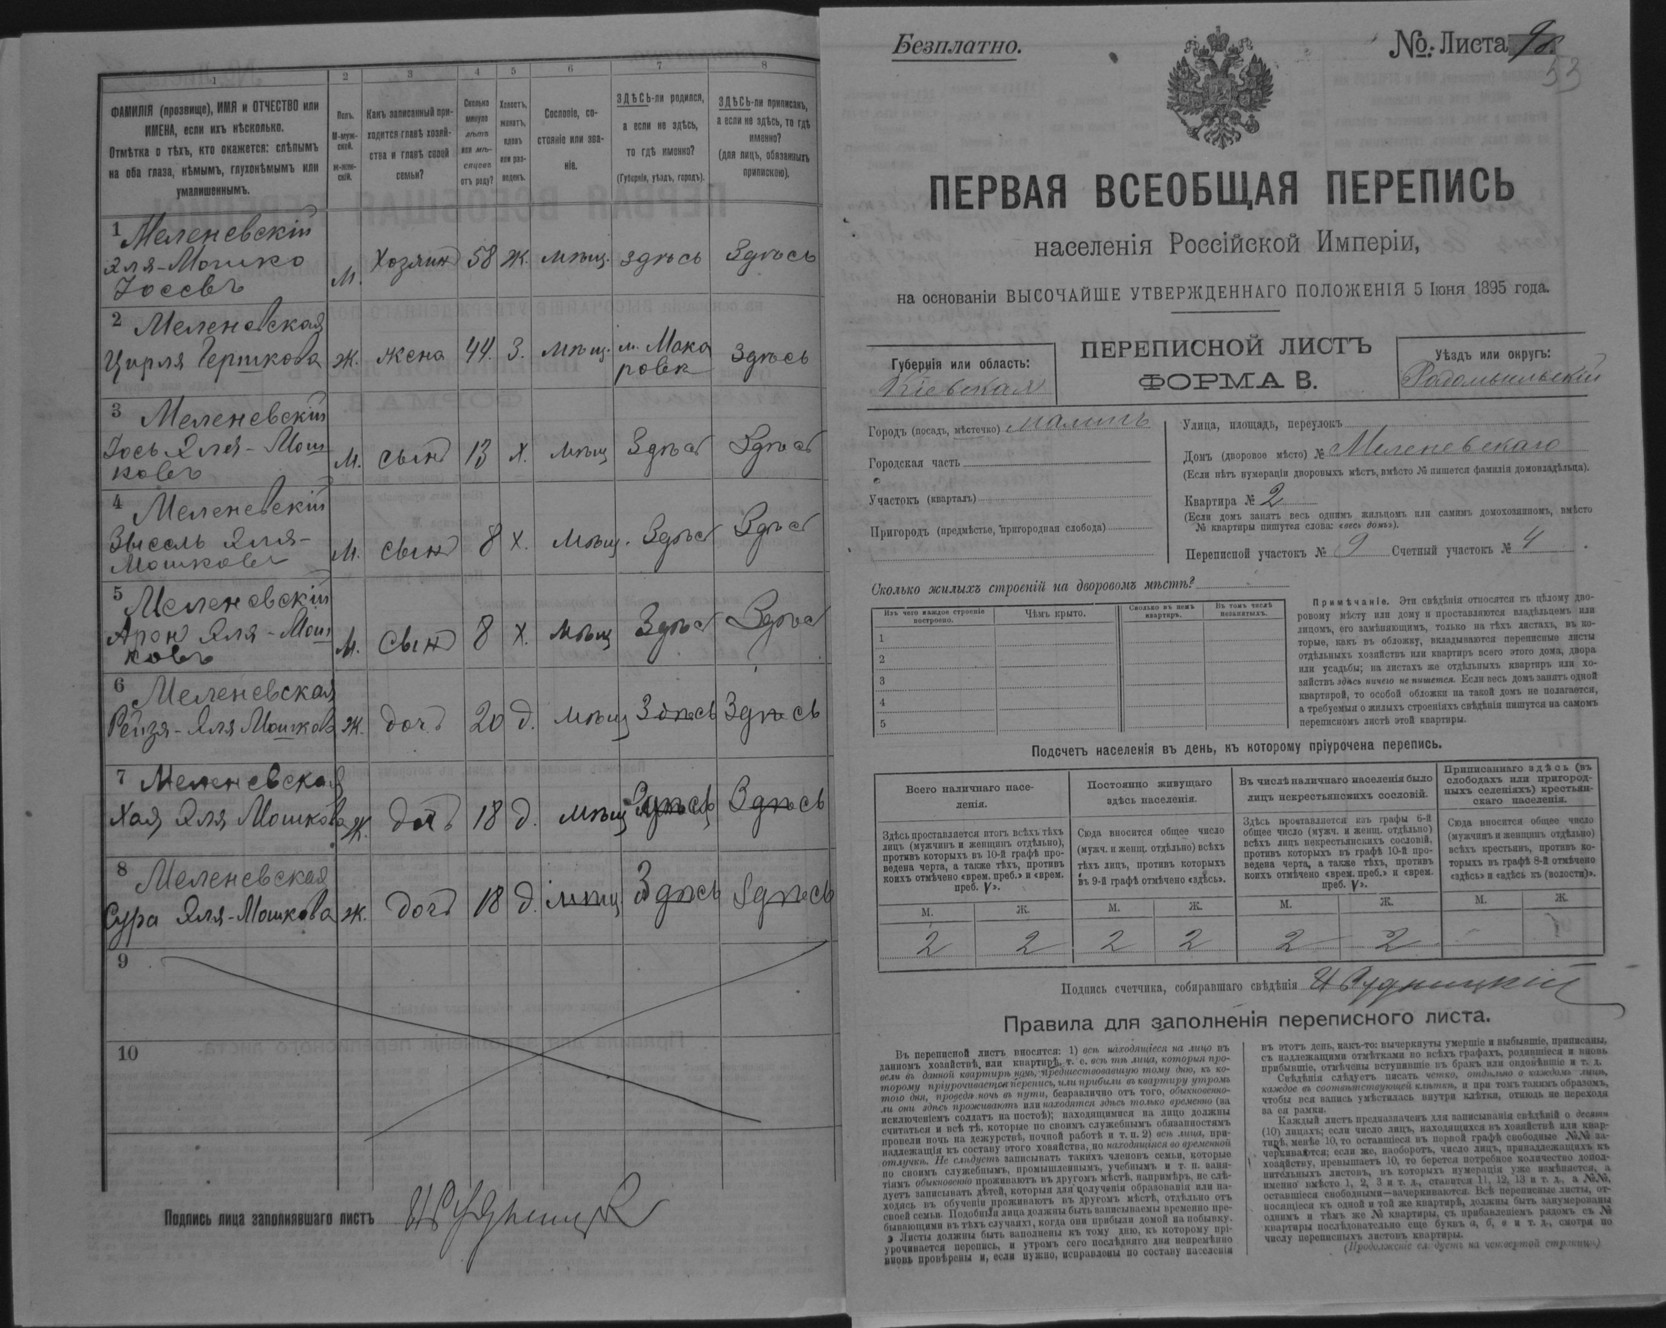 1
2
3
4
5
6
7
8
ФАМИЛІЯ (прозвище), ИМЯ и ОТЧЕСТВО или
ИМЕНА, если ихъ нѣсколько.
Отмѣтка о тѣхъ, кто окажется: слѣпымъ
на оба глаза, нѣмымъ, глухонѣмымъ или
умалишеннымъ.
Полъ.
М-муж-
ской.
Ж-жен-
скій.
Какъ записанный при-
ходится главѣ хозяй-
ства и главѣ своей
семьи?
Сколько
минуло
лѣтъ
или мѣ-
сяцевъ
отъ роду?
Холостъ,
женатъ,
вдовъ
или раз-
веденъ.
Сословіе, со-
стояніе или зва-
ніе.
ЗДѢСЬ-ли родился,
а если не здѣсь,
то гдѣ именно?
(Губернія, уѣздъ, городъ).
ЗДѢСЬ-ли приписанъ,
а если не здѣсь, то гдѣ
именно?
(для лицъ, обязанныхъ
припискою).
1 Меленевскій
Эля-Мошко
Іосевъ
м.
Хозяин 58 Ж. мѣщ. здѣсь Здѣсь
2 Меленевская
Цирля Гершкова ж. жена 44. З. мѣщ. м. Мака
ровк
здѣсь
3 Меленевскій
Іось Эля-Мош
ковъ
м. сын 13 х. мѣщ Здѣсь Здѣсь
4 Меленевскій
Зысель Эля-
Мошковъ
м. сын 8 х. мѣщ. Здѣсь Здѣсь
5 Меленевскій
Арон Эля-Мош
ковъ
м. сын 8 х. мѣщ Здѣсь Здѣсь
6 Меленевская
Рейзя-Эля Мошкова ж. дочь 20 д. мѣщ Здѣсь Здѣсь
7 Меленевская
Хая Эля Мошкова ж. дочь 18 д. мѣщ Здѣсь Здѣсь
8 Меленевская
Сура Эля-Мошкова ж. дочь 18 д. мѣщ Здѣсь Здѣсь
9
10
Подпись лица заполнявшаго листъ
Безплатно.
№. Листа
53
ПЕРВАЯ ВСЕОБЩАЯ ПЕРЕПИСЬ
населенія Россійской Имперіи,
на основаніи ВЫСОЧАЙШЕ УТВЕРЖДЕННАГО ПОЛОЖЕНІЯ 5 Іюня 1895 года.
Губернія или область:
Кіевская
ПЕРЕПИСНОЙ ЛИСТЪ
ФОРМА В.
Уѣздъ или округъ:
Радомысльскій
Городъ (посадъ, мѣстечко) малинъ
Городская часть
Участокъ (кварталъ)
Пригородъ (предмѣстье, пригородная слобода)
Улица, площадь, переулокъ
Домъ (дворовое мѣсто) № Меленевскаго
(Если нѣтъ нумераціи дворовыхъ мѣстъ, вмѣсто № пишется фамилія домовладѣльца).
Квартира № 2
(Если домъ занятъ весь однимъ жильцомъ или самимъ домохозяиномъ, вмѣсто
№ квартиры пишутся слова: «весь домъ»).
Переписной участокъ № 9 Счетный участокъ № 4.
Сколько жилыхъ строеній на дворовомъ мѣстѣ?
Изъ чего каждое строеніе
построено.
Чѣмъ крыто.
Сколько въ немъ
квартиръ.
Въ томъ числѣ
незанятыхъ.
1
2
3
4
5
Примѣчаніе. Эти свѣдѣнія относятся къ цѣлому дво-
ровому мѣсту или дому и проставляются владѣльцемъ или
лицомъ, его замѣняющимъ, только на тѣхъ листахъ, въ ко-
торые, какъ въ обложку, вкладываются переписные листы
отдѣльныхъ хозяйствъ или квартиръ всего этого дома, двора
или усадьбы; на листахъ же отдѣльныхъ квартиръ или хо-
зяйствъ здѣсь ничего не пишется. Если весь домъ занятъ одной
квартирой, то особой обложки на такой домъ не полагается,
а требуемыя о жилыхъ строеніяхъ свѣдѣнія пишутся на самомъ
переписномъ листѣ этой квартиры.
Подсчетъ населенія въ день, къ которому пріурочена перепись.
Всего наличнаго насе-
ленія.
Постоянно живущаго
здѣсь населенія.
Въ числѣ наличнаго населенія было
лицъ некрестьянскихъ сословій.
Приписаннаго здѣсь (въ
слободахъ или пригород-
ныхъ селеніяхъ) крестьян-
скаго населенія.
Здѣсь проставляется итогъ всѣхъ тѣхъ
лицъ (мужчинъ и женщинъ отдѣльно),
противъ которыхъ въ 10-й графѣ про-
ведена черта, а также тѣхъ, противъ
коихъ отмѣчено «врем. преб.» и «врем.
преб. V».
Сюда вносится общее число
(мужч. и женщ. отдѣльно) всѣхъ
тѣхъ лицъ, противъ которыхъ
въ 9-й графѣ отмѣчено «здѣсь».
Здѣсь проставляется изъ графы 6-й
общее число (мужч. и женщ. отдѣльно)
всѣхъ лицъ некрестьянскихъ сословій,
противъ которыхъ въ графѣ 10-й про-
ведена черта, а также тѣхъ, противъ
коихъ отмѣчено «врем. преб.» и «врем.
преб. V».
Сюда вносится общее число
(мужчинъ и женщинъ отдѣльно)
всѣхъ крестьянъ, противъ ко-
торыхъ въ графѣ 8-й отмѣчено
«здѣсь» и «здѣсь къ (волости)».
М. Ж. М. Ж. М. Ж. М. Ж.
2 2 2 2 2 2
Подпись счетчика, собиравшаго свѣдѣнія И Рудницкій
Правила для заполненія переписного листа.
Въ переписной листъ вносятся: 1) всѣ находящіеся на лицо въ
данномъ хозяйствѣ, или квартирѣ, т. е. всѣ тѣ лица, которыя про-
вели въ данной квартирѣ ночь, предшествовавшую тому дню, къ ко-
торому пріурочивается перепись, или прибыли въ квартиру утромъ
того дня, проведя ночь въ пути, безразлично отъ того, обыкновенно-
ли они здѣсь проживаютъ или находятся здѣсь только временно (за
исключеніемъ солдатъ на постоѣ); находящимися на лицо должны
считаться и всѣ тѣ, которые по своимъ служебнымъ обязанностямъ
провели ночь на дежурствѣ, ночной работѣ и т. п. 2) всѣ лица, при-
надлежащія къ составу этого хозяйства, но находящіяся во временной
отлучкѣ. Не слѣдуетъ записывать такихъ членовъ семьи, которые
по своимъ служебнымъ, промышленнымъ, учебнымъ и т. п. заня-
тіямъ обыкновенно проживаютъ въ другомъ мѣстѣ, напримѣръ, не слѣ-
дуетъ записывать дѣтей, которыя для полученія образованія или на-
ходясь въ обученіи проживаютъ въ другомъ мѣстѣ, отдѣльно отъ
своей семьи. Подобныя лица должны быть записываемы временно пре-
бывающими въ тѣхъ случаяхъ, когда они прибыли домой на побывку.
Листы должны быть заполнены къ тому дню, къ которому прі-
урочивается перепись, и утромъ сего послѣдняго дня непремѣнно
вновь провѣрены и, если нужно, исправлены по составу населенія
въ этотъ день, какъ-то: вычеркнуты умершіе и выбывшіе, приписаны,
съ надлежащими отмѣтками во всѣхъ графахъ, родившіеся и вновь
прибывшіе, отмѣчены вступившіе въ бракъ или овдовѣвшіе и т. д.
Свѣдѣнія слѣдуетъ писать четко, отдѣльно о каждомъ лицѣ,
каждое въ соотвѣтствующей клѣткѣ, и при томъ такимъ образомъ,
чтобы вся запись умѣстилась внутри клѣтки, отнюдь не переходя
за ея рамки.
Каждый листъ предназначенъ для записыванія свѣдѣній о десяти
(10) лицахъ; если число лицъ, находящихся въ хозяйствѣ или квар-
тирѣ, менѣе 10, то оставшіеся въ первой графѣ свободные №№ за-
черкиваются; если же, наоборотъ, число лицъ, принадлежащихъ къ
хозяйству, превышаетъ 10, то берется потребное количество допол-
нительныхъ листовъ, въ которыхъ нумерація уже измѣняется, а
именно вмѣсто 1, 2, 3 и т. д., ставится 11, 12, 13 и т. д., а №№,
оставшіеся свободными—зачеркиваются. Всѣ переписные листы, от-
носящіеся къ одной и той же квартирѣ, должны быть занумерованы
однимъ и тѣмъ же № квартиры, съ прибавленіемъ рядомъ съ №
квартиры послѣдовательно еще буквъ а, б, в и т. д., смотря по
числу переписныхъ листовъ квартиры.
(Продолженіе слѣдуетъ на четвертой страницѣ)